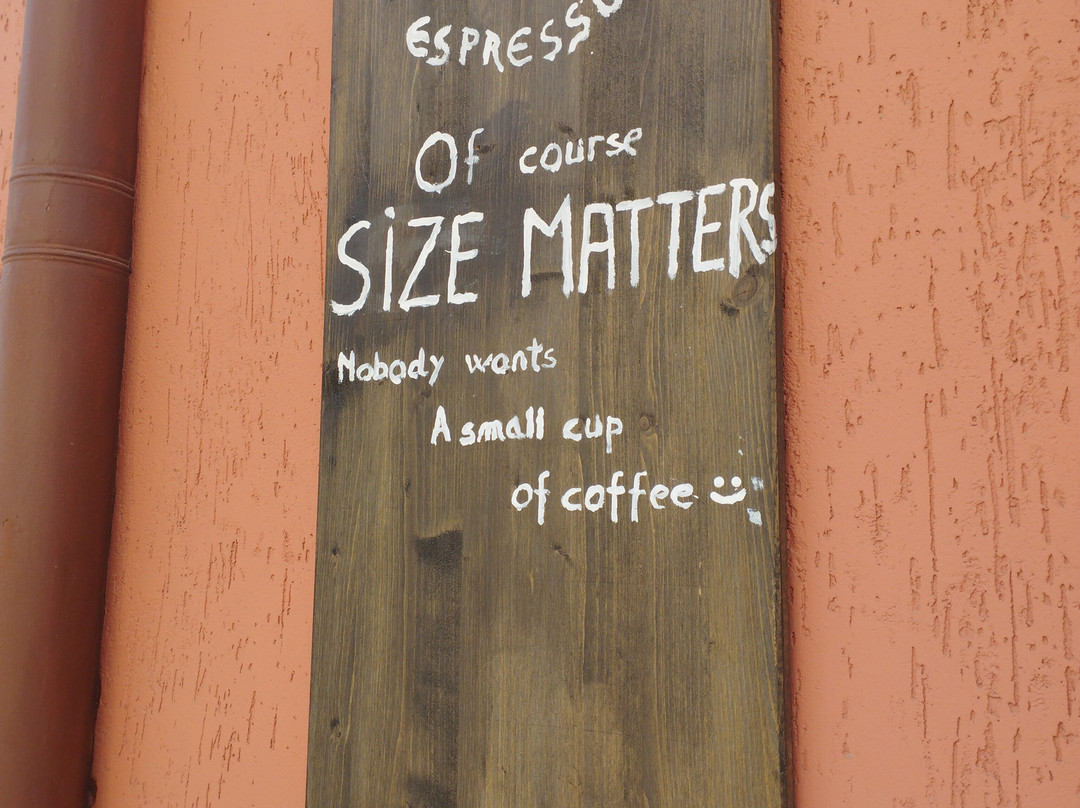 ESPRESSO
Of course
SiZE MATTERS
Nobody wants
A small cup
of coffee